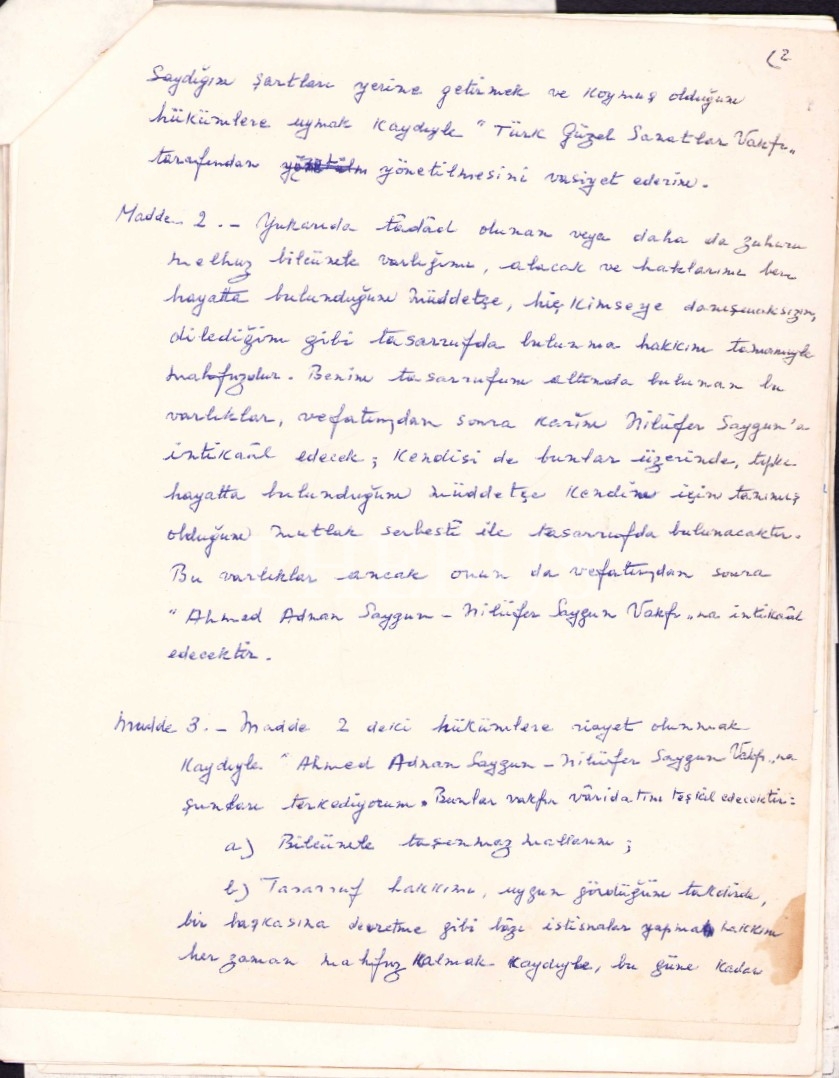 (2
Saydığım şartları yerine getirmek ve koymuş olduğum
hükümlere uymak kaydıyle "Türk Güzel Sanatlar Vakfı„
tarafından yönetilmesini vasiyet ederim.
Madde 2.- Yukarıda tâdâd olunan veya daha da zuhuru
melhuz bilcümle varlığımı, alacak ve haklarımı ben
hayatta bulunduğum müddetçe, hiç kimseye danışmaksızın,
dilediğim gibi tasarrufda bulunma hakkım tamamiyle
mahfuzdur. Benim tasarrufum altında bulunan bu
varlıklar, vefatımdan sonra karım Nilüfer Saygun'a
intikaâl edecek; kendisi de bunlar üzerinde, tıpkı
hayatta bulunduğum müddetçe kendim için tanımış
olduğum mutlak serbestî ile tasarrufda bulunacaktır.
Bu varlıklar ancak onun da vefatından sonra
"Ahmed Adnan Saygun - Nilüfer Saygun Vakfı„na intikaâl
edecektir.
Madde 3.- Madde 2 deki hükümlere riayet olunmak
kaydıyle "Ahmed Adnan Saygun - Nilüfer Saygun Vakfı„na
şunları terkediyorum. Bunlar vakfın vâridatını teşkil edecektir:
a) Bilcümle taşınmaz mallarım;
b) Tasarruf hakkımı, uygun gördüğüm takdirde,
bir başkasına devretme gibi bâzı istisnalar yapmak hakkım
her zaman mahfuz kalmak kaydıyle, bu güne kadar